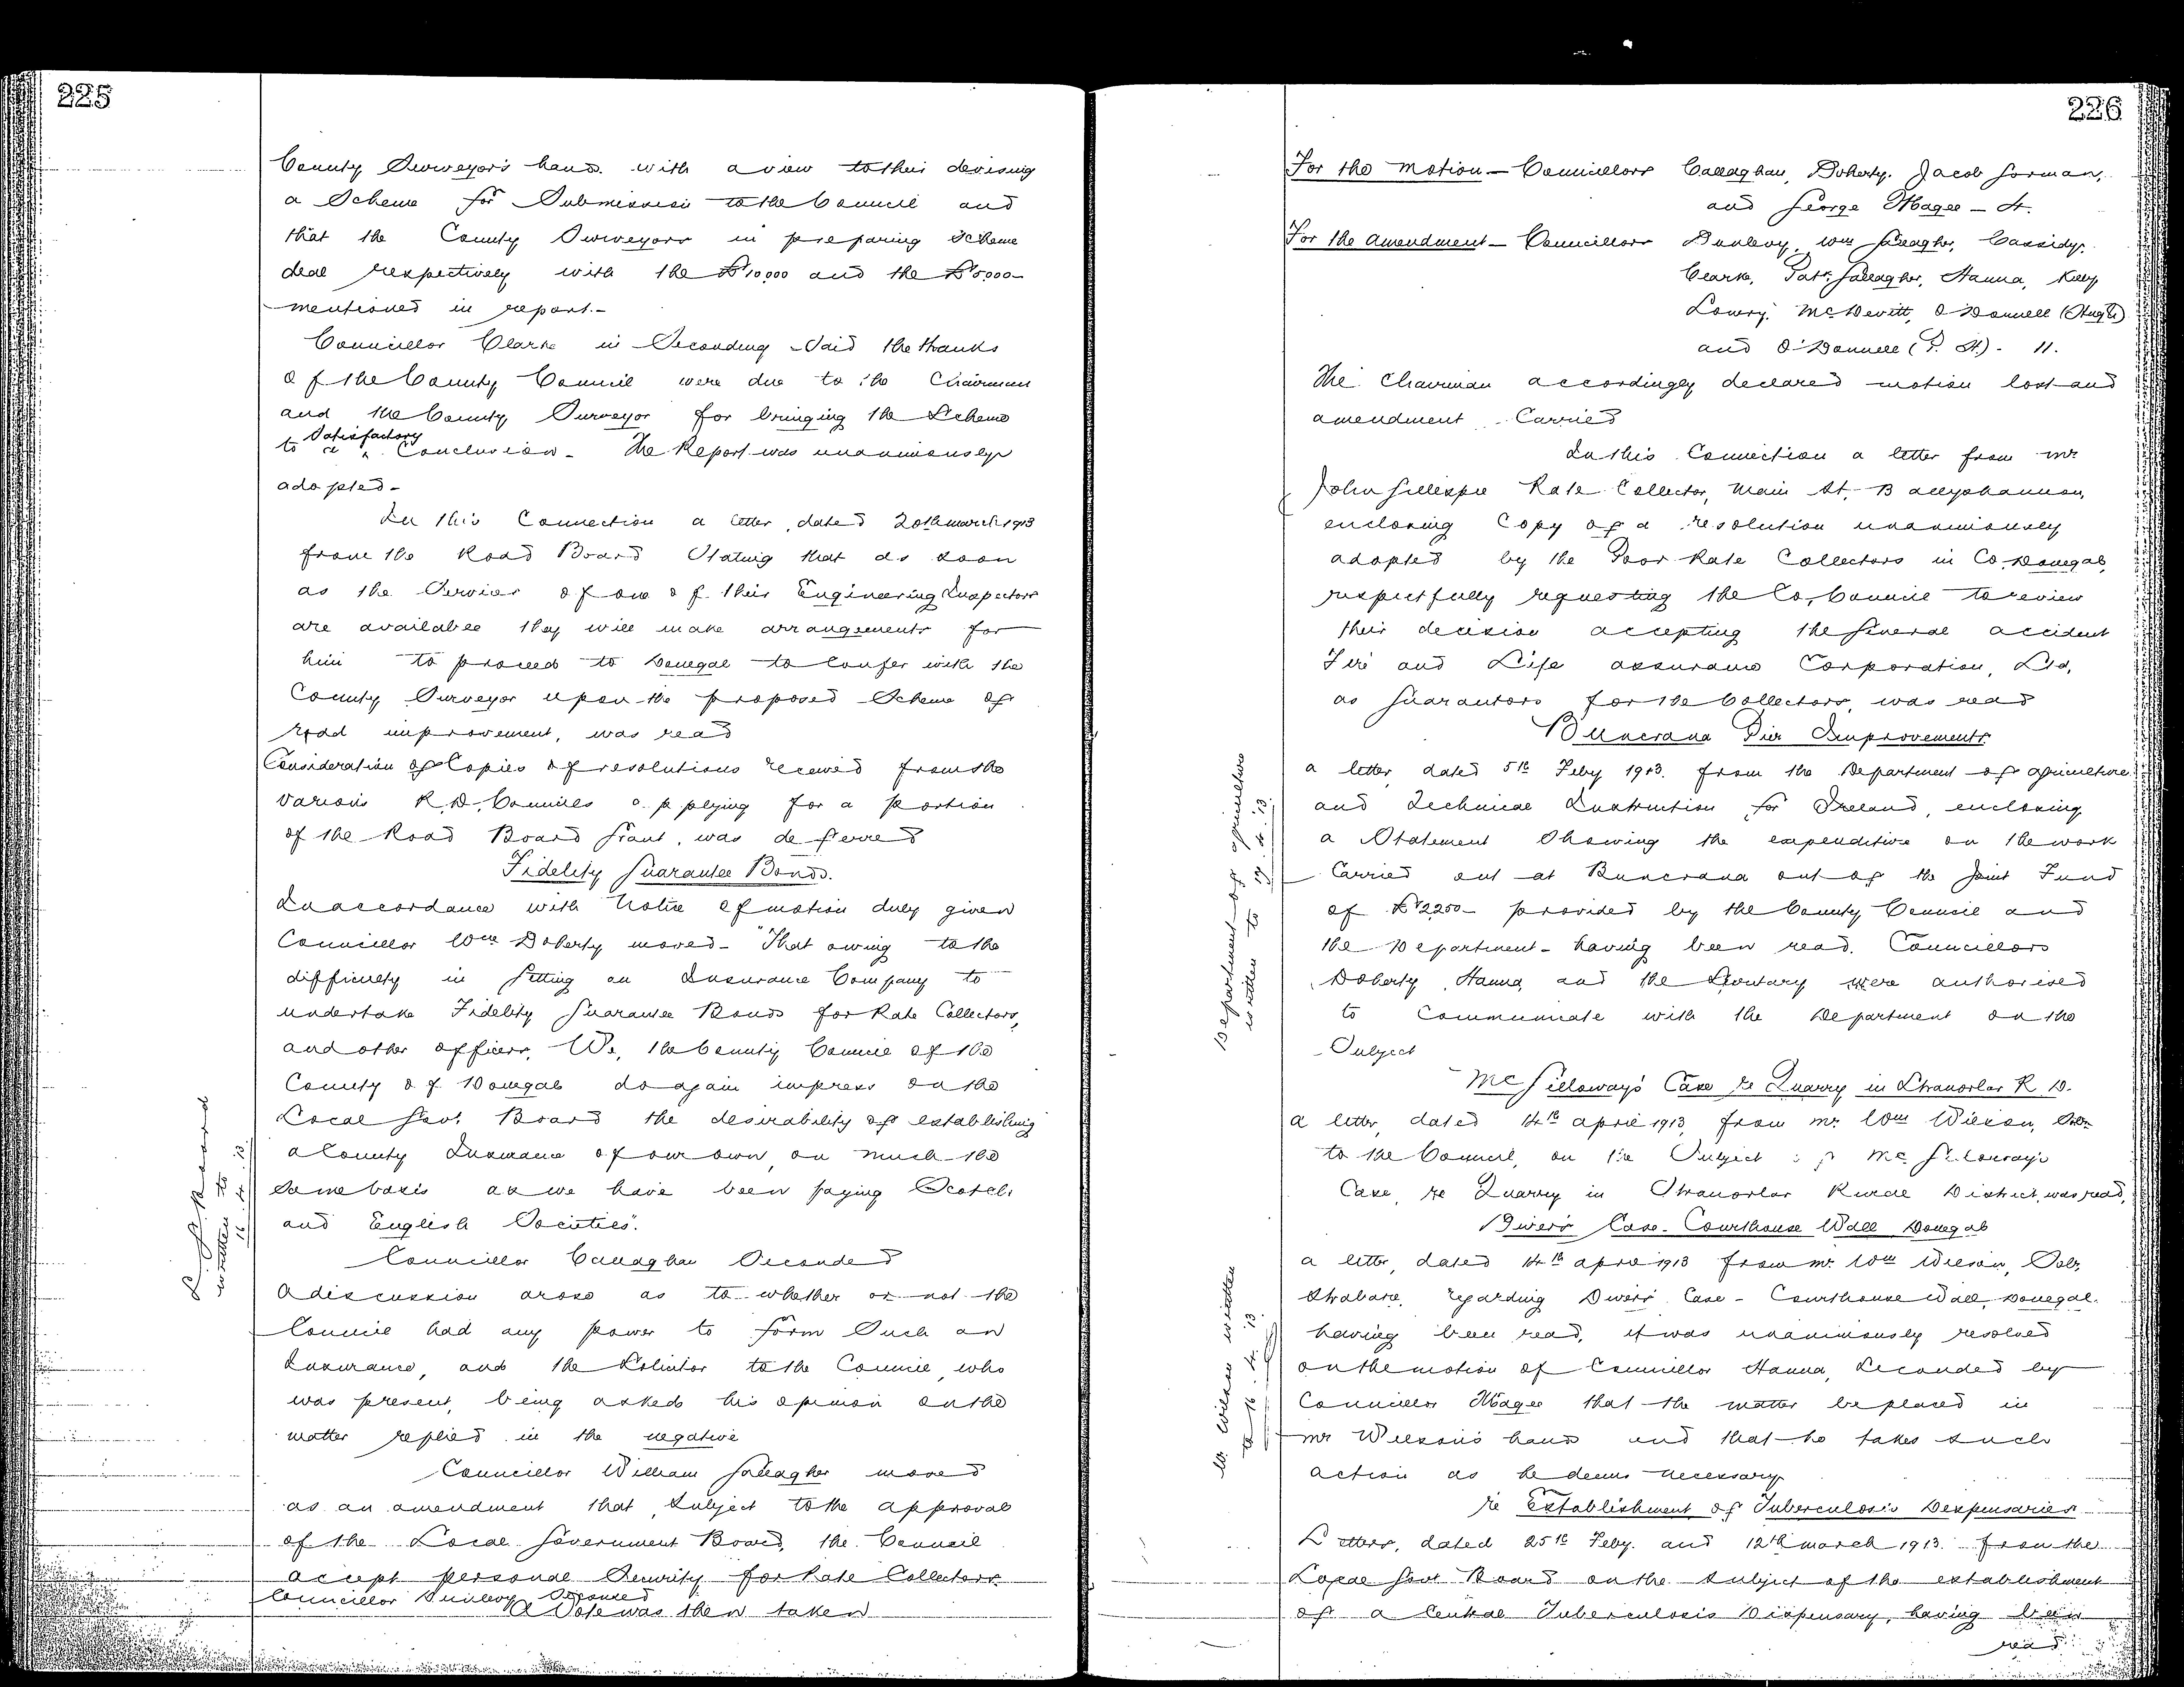 225
County Surveyor's hands with a view to their devising
a Scheme for Submission to the Council and
that the County Surveyors in preparing Scheme
deal respectively with the £10,000 and the £5,000-
mentioned in report.-
Councillor Clarke in Seconding said the thanks
of the County Council were due to the Chairman
and the County Surveyor for bringing the Scheme
to a satisfactory Conclusion - The Report was unanimously
adopted -
In this Connection a letter, dated 20th march 1913
from the Road Board Stating that as soon
as the Services of one of their Engineering Inspectors
are available they will make arrangements for
him to proceed to Donegal to Confer with the
County Surveyor upon the proposed Scheme of
road improvement, was read
Consideration of Copies of resolutions received from the
various R.D. Councils applying for a portion
of the Road Board Grant, was deferred
Fidelity Guarantee Bonds.
In accordance with Notice of motion duly given
Councillor Wm Doherty moved - "That owing to the
difficulty in getting an Insurance Company to
undertake Fidelity Guarantee Bonds for Rate Collectors,
and other officers, We, the County Council of the
County of Donegal do again impress on the
Local Govt. Board the desirability of establishing
a County Insurance of our own, on much the
same basis as we have been paying Scotch
and English Societies".
Councillor Callaghan Seconded
A discussion arose as to whether or not the
Council had any power to form Such an
Insurance, and the Solicitor to the Council, who
was present, being asked his opinion on the
matter replied in the negative
Councillor William Gallagher moved
as an amendment that subject to the approval
of the Local Government Board, the Council
accept personal Security for Rate Collectors.
Councillor Dunlevy Seconded
A Vote was then taken
226
For the Motion - Councillors Callaghan, Doherty, Jacob Gorman,
and George Magee - 4.
For the Amendment - Councillors Dunlevy, Wm Gallagher, Cassidy,
Clarke, Patk. Gallagher, Hanna, Kelly
Lowry, McDevitt, O'Donnell (Hugh)
and O'Donnell (P. H.). 11.
The Chairman accordingly declared motion lost and
amendment Carried
In this Connection a letter from Mr
John Gillespie Rate Collector, Main St. Ballyshannon,
enclosing Copy of a resolution unanimously
adopted by the Poor Rate Collectors in Co. Donegal,
respectfully requesting the Co. Council to review
their decision accepting the General accident
Fire and Life assurance Corporation, Ltd,
as Guarantors for the Collectors, was read
Buncrana Pier Improvements.
a letter, dated 5th Feby 1913, from the Department of agriculture
and Technical Instruction for Ireland, enclosing
a Statement Showing the expenditure on the work
Carried out at Buncrana out of the Joint Fund
of £2250- provided by the County Council and
the Department - having been read. Councillors
Doherty, Hanna and the Secretary were authorised
to Communicate with the Department on the
Subject
Department of Agriculture
written to 17. 4. 13
McGilloway's Case re Quarry in Stranorlar R.D.
a letter, dated 14th april 1913, from Mr. Wm Wilson, Solr
to the Council, on the Subject of McGilloway's
Case re Quarry in Stranorlar Rural District, was read,
Diver's Case - Courthouse Wall Donegal
a letter, dated 14th april 1913 from Mr. Wm Wilson, Solr,
Strabane, regarding Diver's Case - Courthouse Wall, Donegal.
having been read, it was unanimously resolved
on the motion of Councillor Hanna, Seconded by
Councillor Magee that the matter be placed in
Mr Wilson's hands and that he takes such
action as he deems necessary
W. Wilson written
to 16. 4. 13
re Establishment of Tuberculosis Dispensaries
Letters, dated 25th Feby. and 12th march 1913 from the
Local Govt Board on the subject of the establishment
of a Central Tuberculosis Dispensary, having been
read